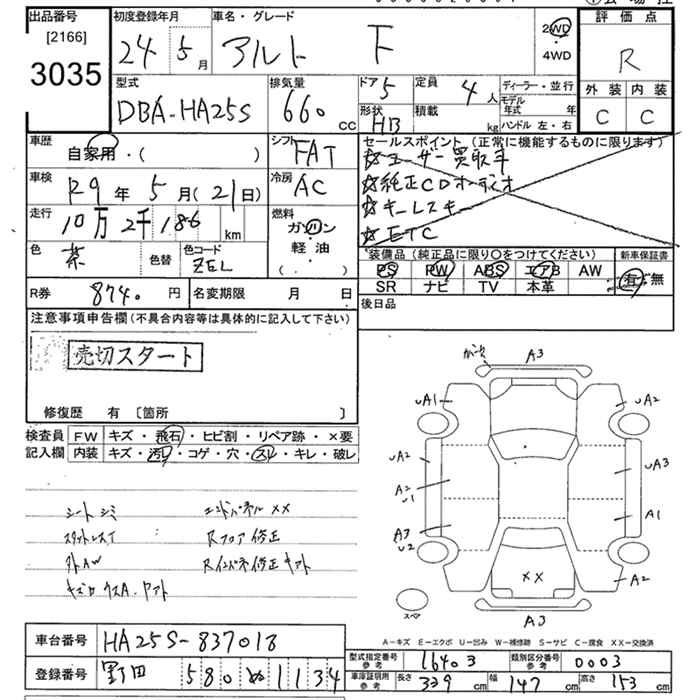 出品番号
[2166]
3035
初度登録年月
24 5月
車名・グレード
アルト F
2WD
・
4WD
評価点
R
外装 内装
C C
型式
DBA-HA25S
排気量
660 cc
ドア 5
定員 4人
形状 HB
積載 kg
ディーラー・並行
モデル年式 年
ハンドル 左・右
車歴
自家用・( )
シフト
FAT
セールスポイント (正常に機能するものに限ります)
☆ユーザー買取車
☆純正CDオーディオ
☆キーレスキー
☆ETC
車検
R9年5月(21日)
冷房
AC
走行
10万2千186 km
燃料
ガソリン
軽・油
( . )
色
茶
色替
色コード
ZEL
装備品 (純正品に限り○をつけてください)
PS PW ABS エアB AW
SR ナビ TV 本革
新車保証書
有・無
R券 8740.円
名変期限 月 日
後日品
注意事項申告欄 (不具合内容等は具体的に記入して下さい)
売切スタート
修復歴 有 〔箇所 〕
検査員
記入欄
FW キズ・飛石・ヒビ割・リペア跡・×要
内装 キズ・汚れ・コゲ・穴・スレ・キレ・破レ
シートシミ
エンドパネル XX
スタットレスT
Rフロア修正
外AW
Rインパネ修正キアト
A3
UA1
UA2
UA2
A2
U1
UA3
A1
A3
U2
A2
XX
スペア
A3
A-キズ E-エクボ U-凹み W-補修跡 S-サビ C-腐食 XX-交換済
車台番号 HA25S-837018
登録番号 野田 580 ぬ 1134
型式指定番号
参考
16403
類別区分番号
参考
0003
車庫証明用
参考
長さ 339 cm
幅 147 cm
高さ 153 cm